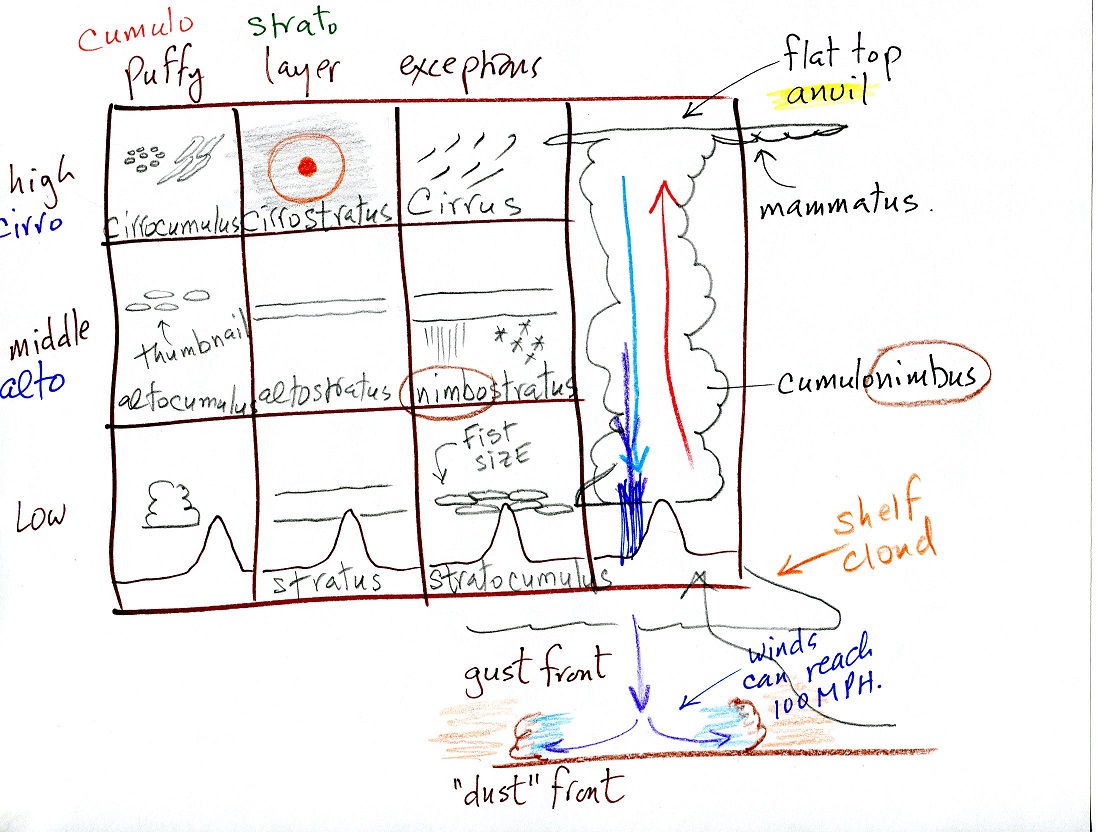 cumulo
puffy
strato
layer
exceptions
flat top
anvil
high
cirro
cirrocumulus
cirrostratus
Cirrus
mammatus.
middle
alto
thumbnail
altocumulus
altostratus
nimbostratus
cumulonimbus
Low
Fist
SIZE
stratus
stratocumulus
shelf
cloud
gust front
winds
can reach
100 MPH.
"dust" front